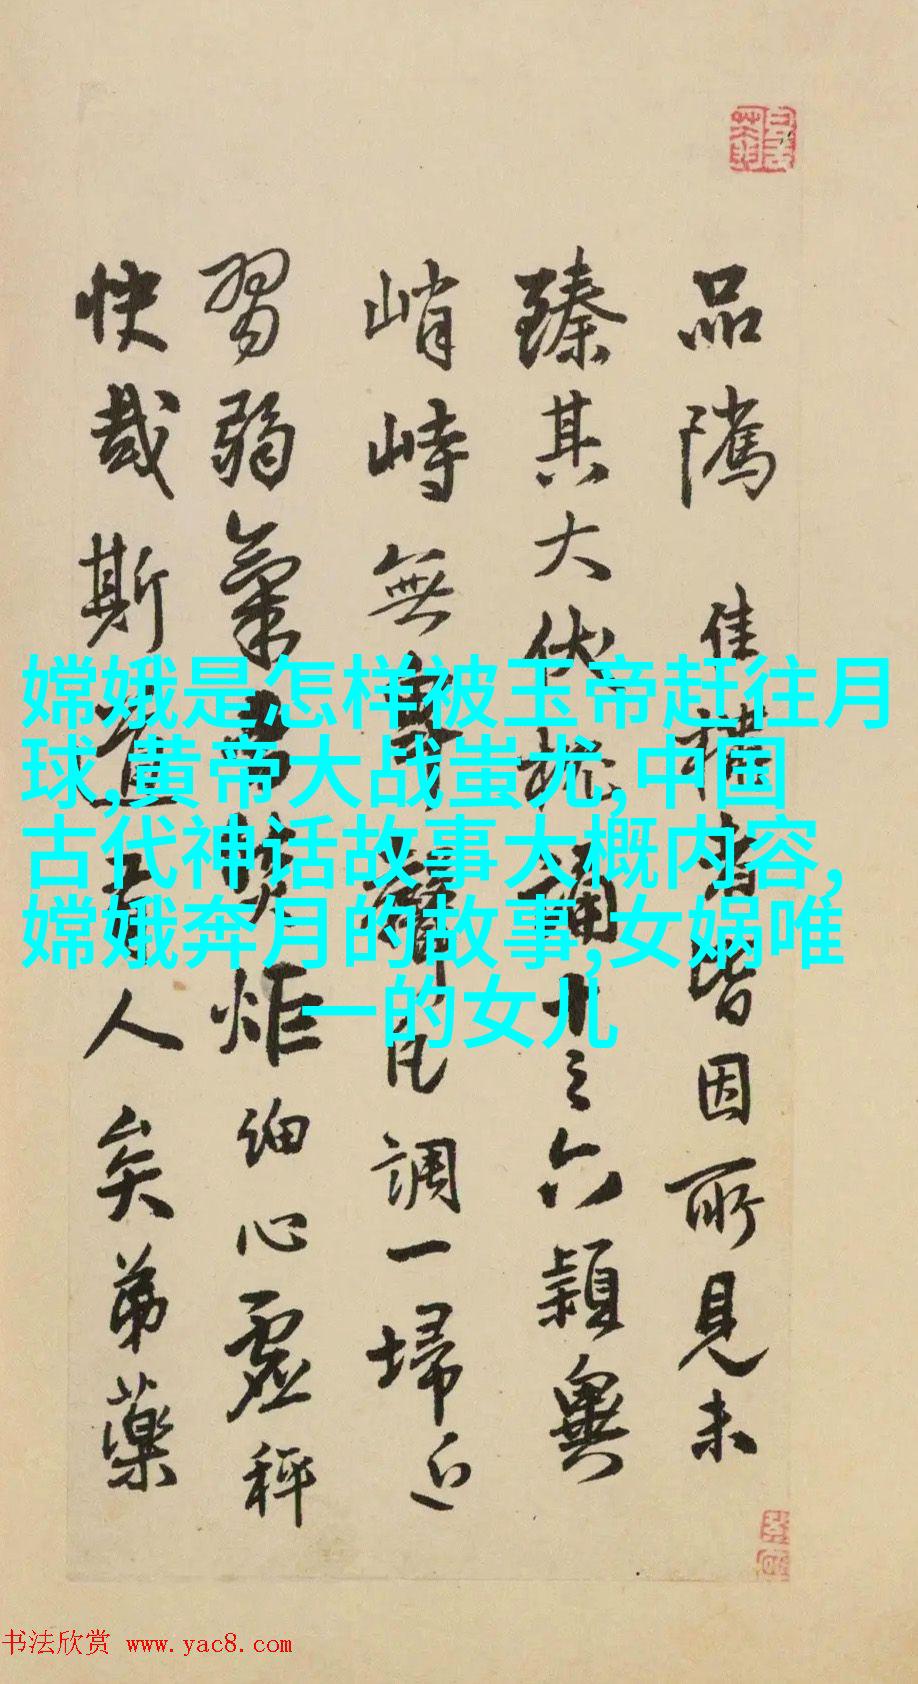 嫦娥是怎样被玉帝赶往月
球,黄帝大战蚩尤,中国
古代神话故事大概内容,
嫦娥奔月的故事,女娲唯
一的女儿
品隲佳禊者皆因所见未
臻其大伏枕诵十三六颖奥
峭峙無聲凡調一埽近
習弱氣炬细心虚秤
快哉斯人矣弟藥
书法欣赏 www.yac8.com